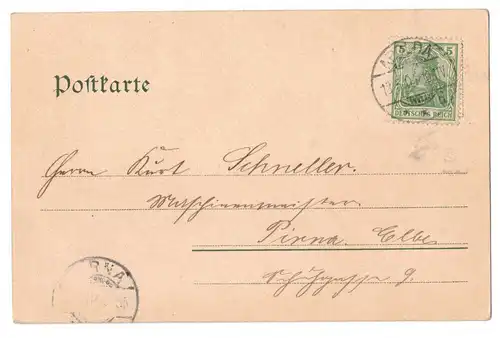 Postkarte
5 5
DEUTSCHES REICH
Herrn Kurt Schneller.
Maschinenmeister
Pirna Elbe
9.
PIRNA